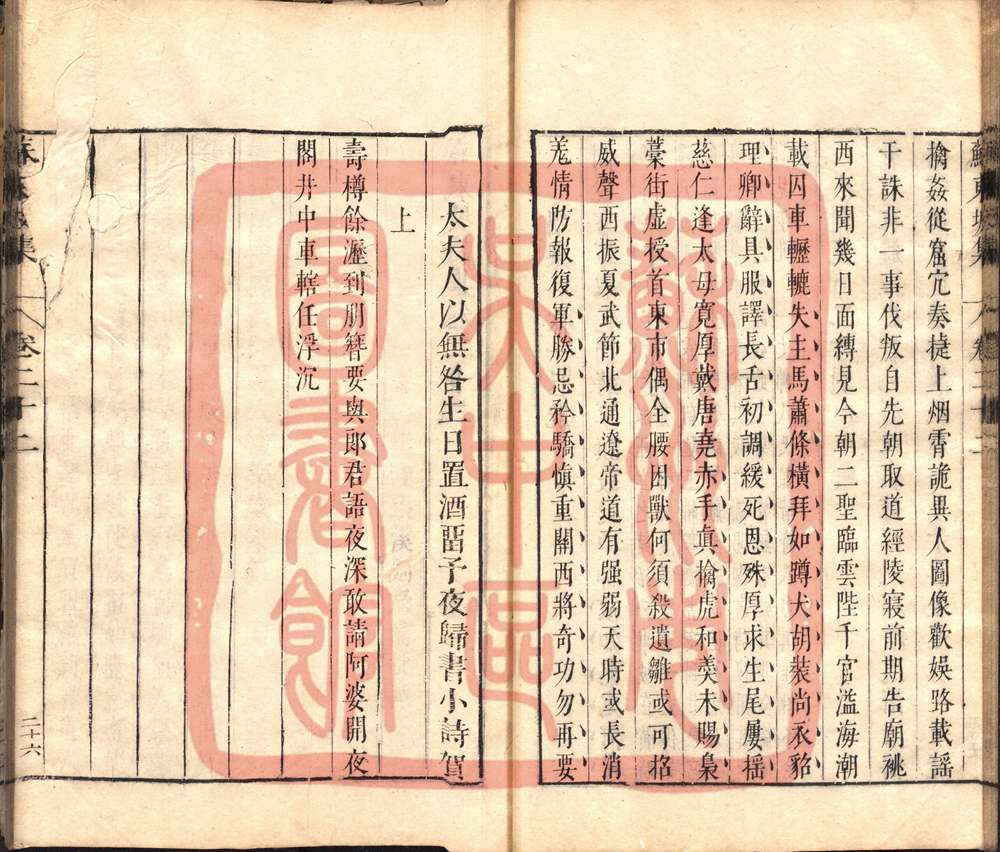 蘇東坡集 卷二十二
擒姦從窟宂奏捷上烟霄詭異人圖像歡娛路載謡
干誅非一事伐叛自先朝取道經陵寢前期告廟祧
西來聞幾日面縛見今朝二聖臨雲陛千官溢海潮
載囚車轣轆失主馬蕭條橫拜如蹲犬胡裝尚衣貂
理卿辭具服譯長舌初調緩死恩殊厚求生尾屢摇
慈仁逢太母寛厚戴唐堯赤手真擒虎和羮未賜梟
藁街虚授首東市偶全腰困獸何須殺遺雛或可招
威聲西振夏武節北通遼帝道有强弱天時或長消
羗情防報復軍勝忌矜驕愼重關西將奇功勿再要
太夫人以無咎生日置酒畱予夜歸書小詩賀
上
壽樽餘瀝到朋簪要與郎君語夜深敢請阿婆開夜
閤井中車轄任浮沉
集 卷二十二
二十六
圖書館